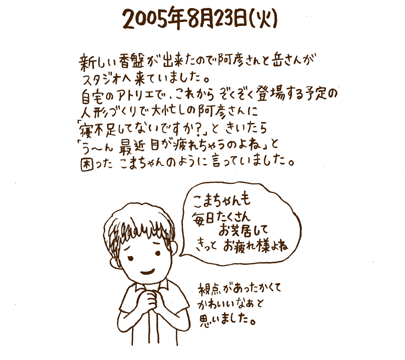 2005年8月23日(火)
新しい香盤が出来たので阿彦さんと岳さんが
スタジオへ来ていました。
自宅のアトリエで、これから ぞくぞく登場する予定の
人形づくりで大忙しの阿彦さんに
「寝不足してないですか?」と きいたら
「う〜ん 最近 目が疲れちゃうのよね」と
困った こまちゃんのように言っていました。
こまちゃんも
毎日たくさん
お芝居して
きっと お疲れ様よね
視点があったかくて
かわいいなぁと
思いました。